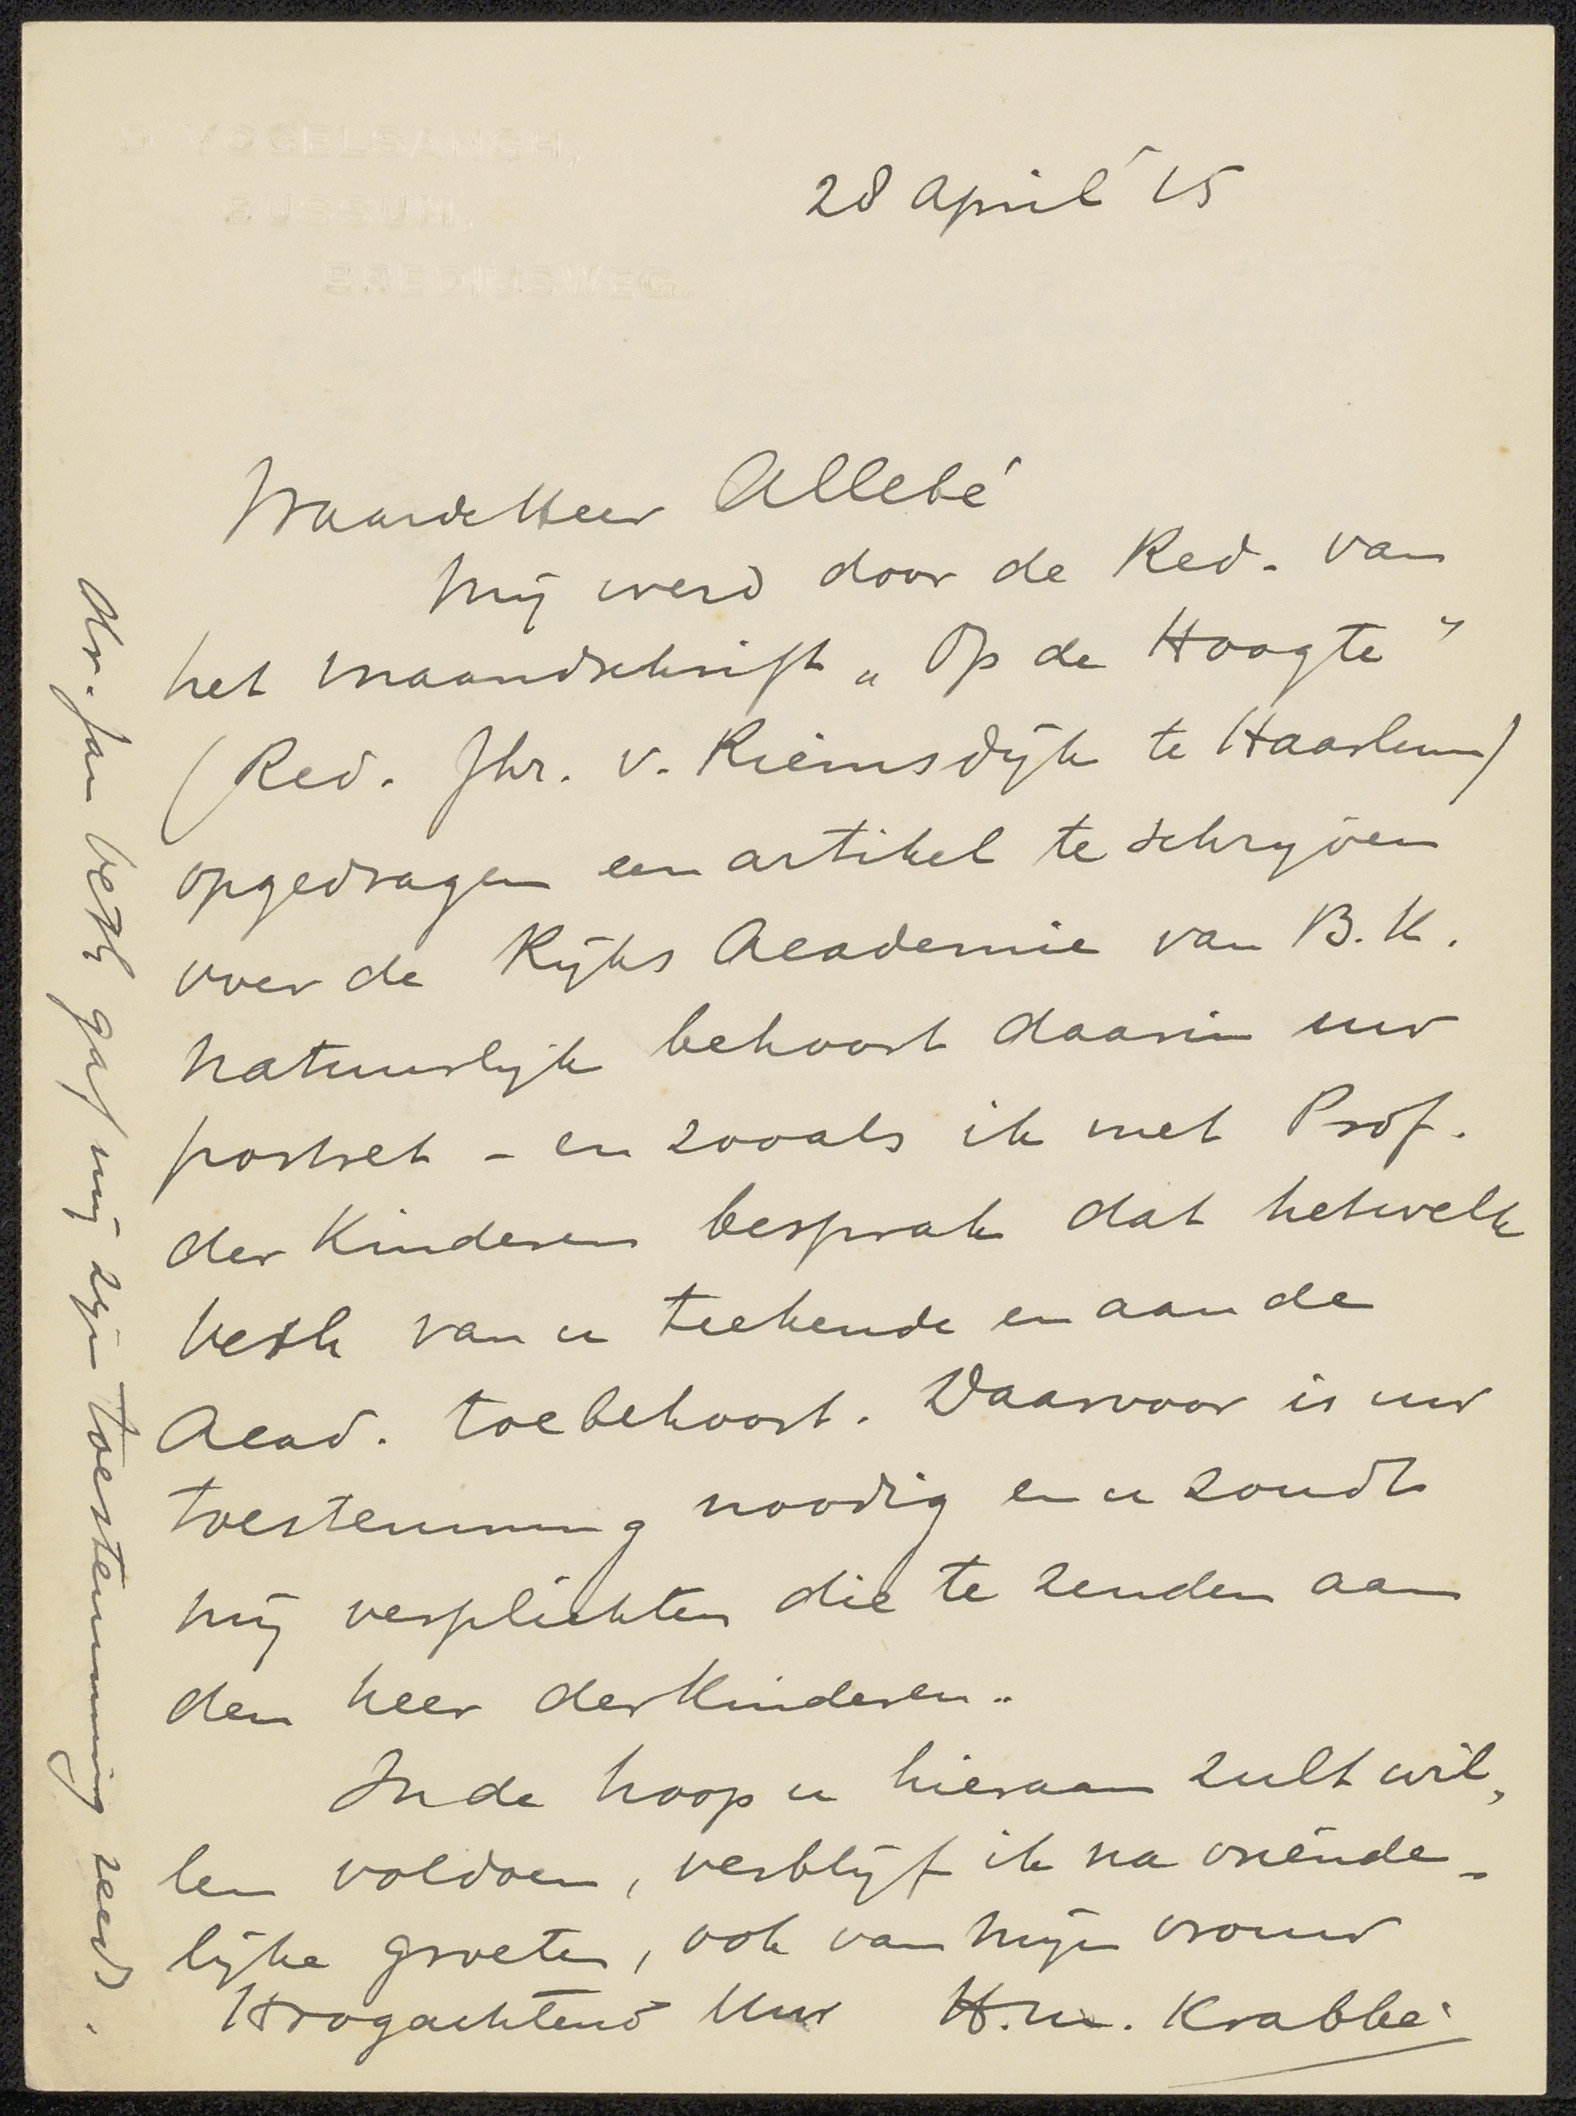 D' VOGELSANGH,
BUSSUM.
BREDIUSWEG.
28 april '15
Waarde Heer Allebé
Mij werd door de Red. van
het maandschrift „Op de Hoogte"
(Red. Jhr. v. Riemsdijk te Haarlem)
opgedragen een artikel te schrijven
over de Rijks Academie van B.K.
natuurlijk behoort daarin uw
portret – en zooals ik met Prof.
der Kinderen besprak dat hetwelk
Veth van u teekende en aan de
Acad. toebehoort. Daarvoor is uw
toestemming noodig en u zoudt
mij verplichten die te zenden aan
den heer der Kinderen.
In de hoop u hieraan zult wil-
len voldoen, verblijf ik na vriende-
lijke groeten, ook van mijn vrouw
Hoogachtend Uw H.M. Krabbé
Dr. Jan Veth gaf mij zijn toestemming reeds.